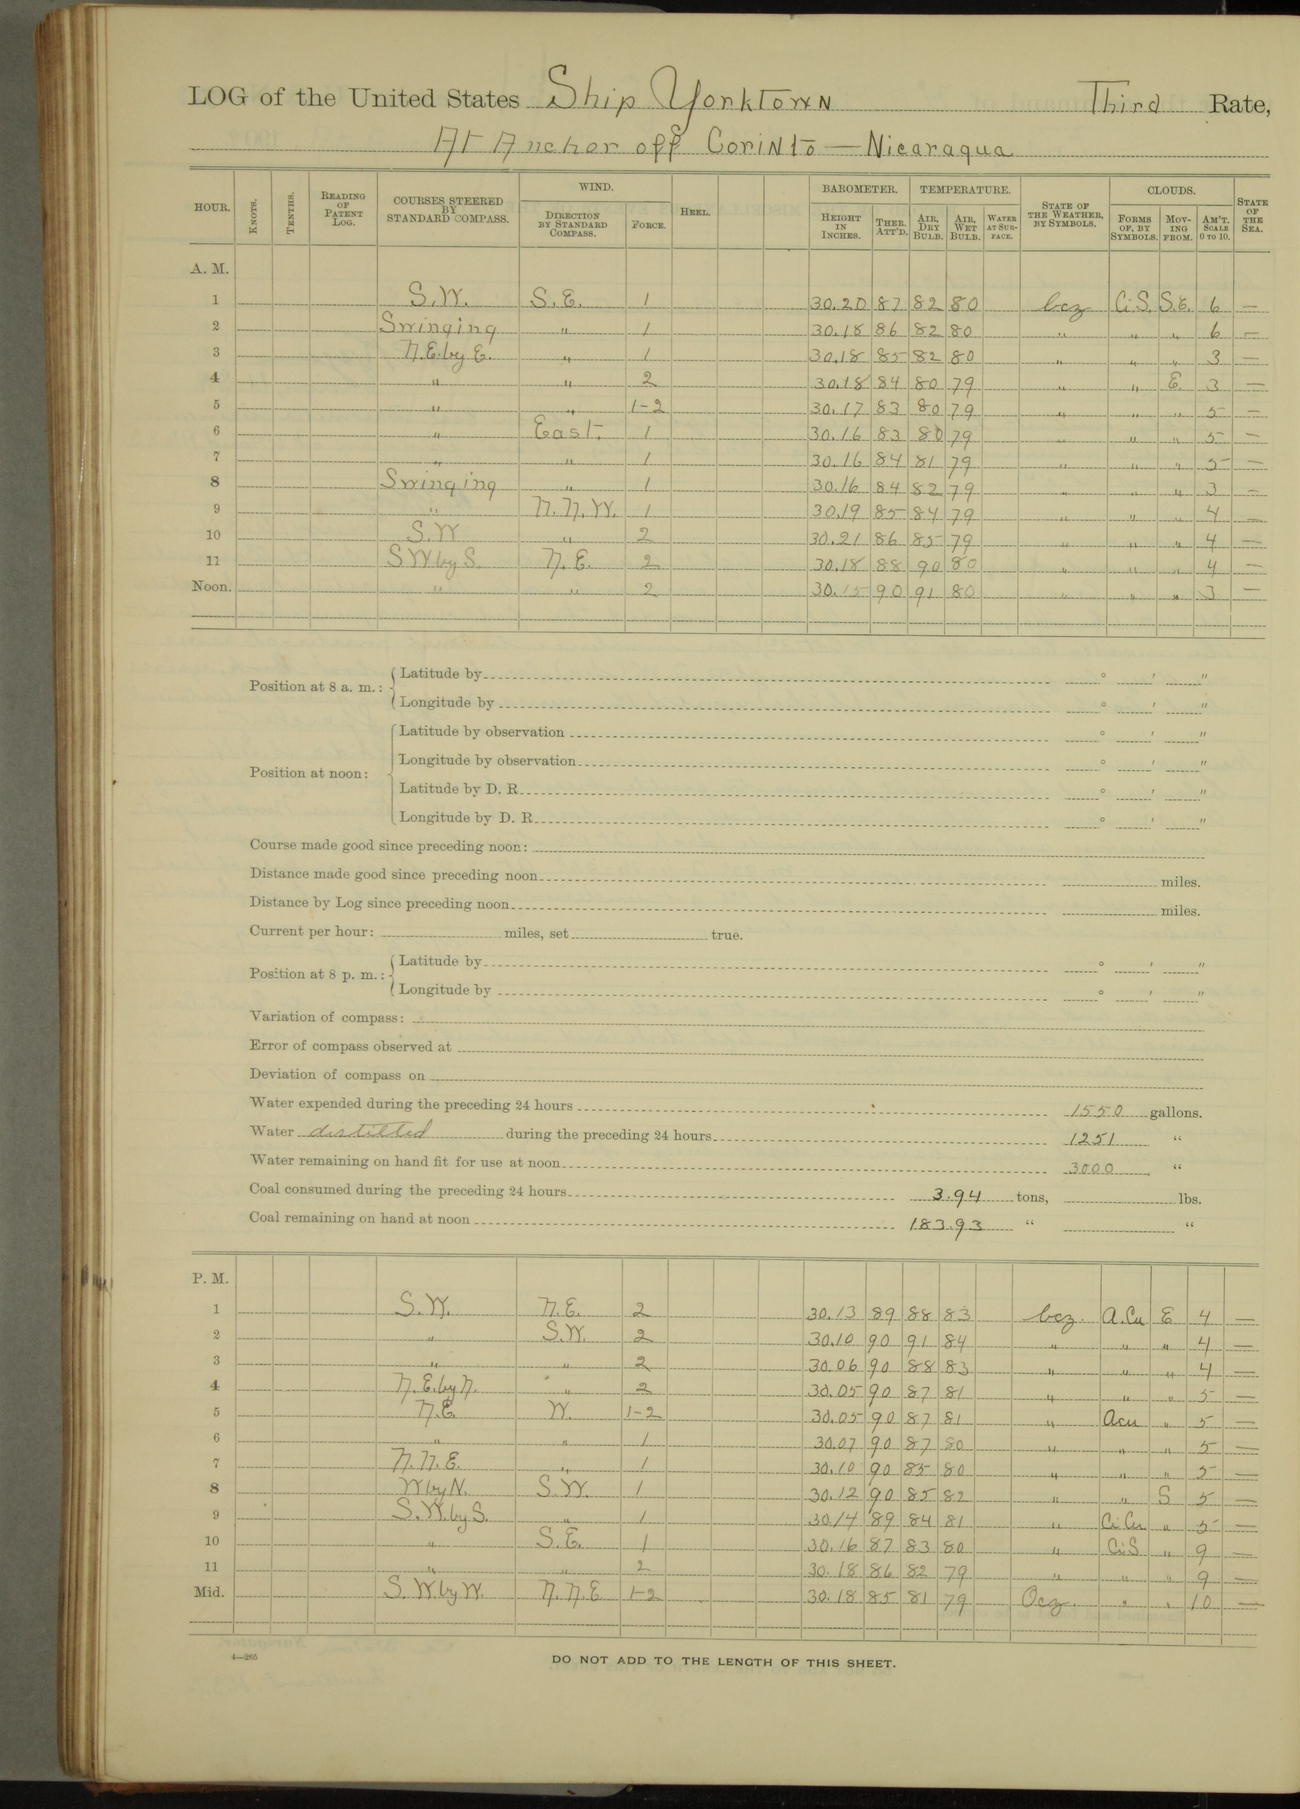 LOG of the United States Ship Yorktown Third Rate,
At Anchor off Corinto — Nicaragua
HOUR. KNOTS. TENTHS. READING OF PATENT LOG. COURSES STEERED BY STANDARD COMPASS. WIND. DIRECTION BY STANDARD COMPASS. FORCE. HEEL. BAROMETER. HEIGHT IN INCHES. THER. ATT'D. TEMPERATURE. AIR, DRY BULB. AIR, WET BULB. WATER AT SURFACE. STATE OF THE WEATHER, BY SYMBOLS. CLOUDS. FORMS OF, BY SYMBOLS. MOVING FROM. AM'T. SCALE 0 TO 10. STATE OF THE SEA.
A. M.
1 S.W. S.E. 1 30.20 87 82 80 bcz Ci.S. S.E. 6 —
2 Swinging " 1 30.18 86 82 80 " " " 6 —
3 N.E. by E. " 1 30.18 85 82 80 " " " 3 —
4 " " 2 30.18 84 80 79 " " E. 3 —
5 " " 1-2 30.17 83 80 79 " " " 5 —
6 " East. 1 30.16 83 80 79 " " " 5 —
7 " " 1 30.16 84 81 79 " " " 5 —
8 Swinging " 1 30.16 84 82 79 " " " 3 —
9 " N.N.W. 1 30.19 85 84 79 " " " 4 —
10 S.W " 2 30.21 86 85 79 " " " 4 —
11 S W by S. N.E. 2 30.18 88 90 80 " " " 4 —
Noon. " " 2 30.15 90 91 80 " " " 3 —
Position at 8 a. m.: Latitude by ° ' "
Longitude by ° ' "
Position at noon: Latitude by observation ° ' "
Longitude by observation ° ' "
Latitude by D. R. ° ' "
Longitude by D. R. ° ' "
Course made good since preceding noon:
Distance made good since preceding noon miles.
Distance by Log since preceding noon miles.
Current per hour: miles, set true.
Position at 8 p. m.: Latitude by ° ' "
Longitude by ° ' "
Variation of compass:
Error of compass observed at
Deviation of compass on
Water expended during the preceding 24 hours 1550 gallons.
Water distilled during the preceding 24 hours 1251 "
Water remaining on hand fit for use at noon 3000 "
Coal consumed during the preceding 24 hours 3.94 tons, lbs.
Coal remaining on hand at noon 183.93 " "
P. M.
1 S.W. N.E. 2 30.13 89 88 83 bcz. A.Cu E 4 —
2 " S.W. 2 30.10 90 91 84 " " " 4 —
3 " " 2 30.06 90 88 83 " " " 4 —
4 N.E. by N. " 2 30.05 90 87 81 " " " 5 —
5 N.E. W. 1-2 30.05 90 87 81 " Acu " 5 —
6 " " 1 30.07 90 87 80 " " " 5 —
7 N.N.E. " 1 30.10 90 85 80 " " " 5 —
8 W by N. S.W. 1 30.12 90 85 82 " " S 5 —
9 S.W. by S. " 1 30.14 89 84 81 " Ci Cu " 5 —
10 " S.E. 1 30.16 87 83 80 " Ci S " 9 —
11 " " 2 30.18 86 82 79 " " " 9 —
Mid. S.W. by W. N.N.E 1-2 30.18 85 81 79 Ocz. " " 10 —
4—265
DO NOT ADD TO THE LENGTH OF THIS SHEET.